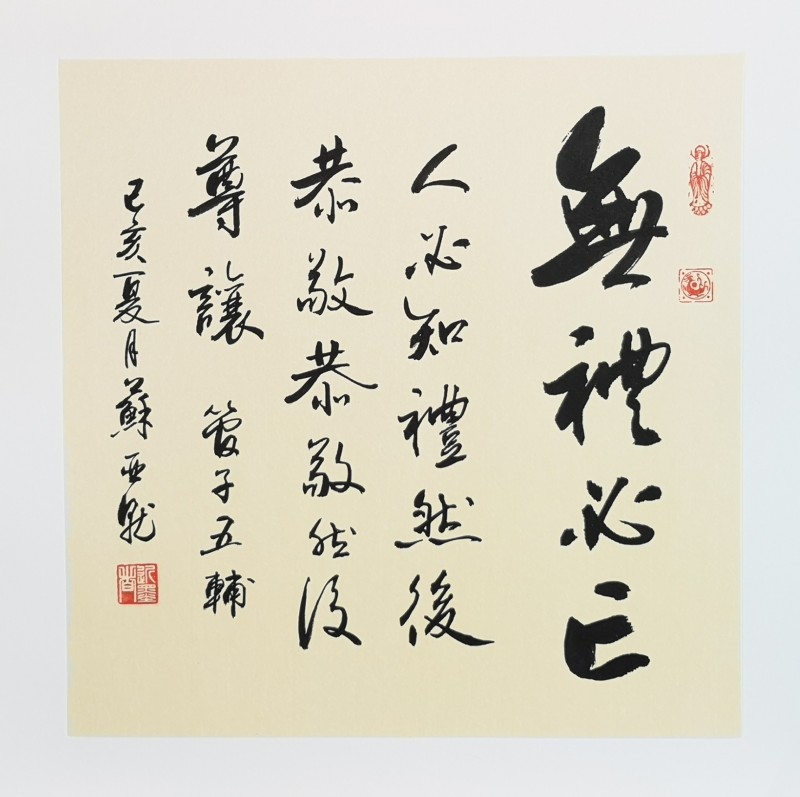 無禮必亡
人必知禮然後
恭敬恭敬然後
尊讓 管子五輔
己亥夏月蘇亞